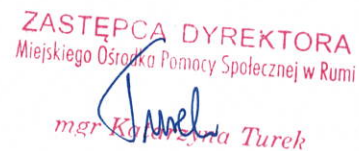 ZASTĘPCA DYREKTORA
Miejskiego Ośrodka Pomocy Społecznej w Rumi
Turek
mgr Katarzyna Turek